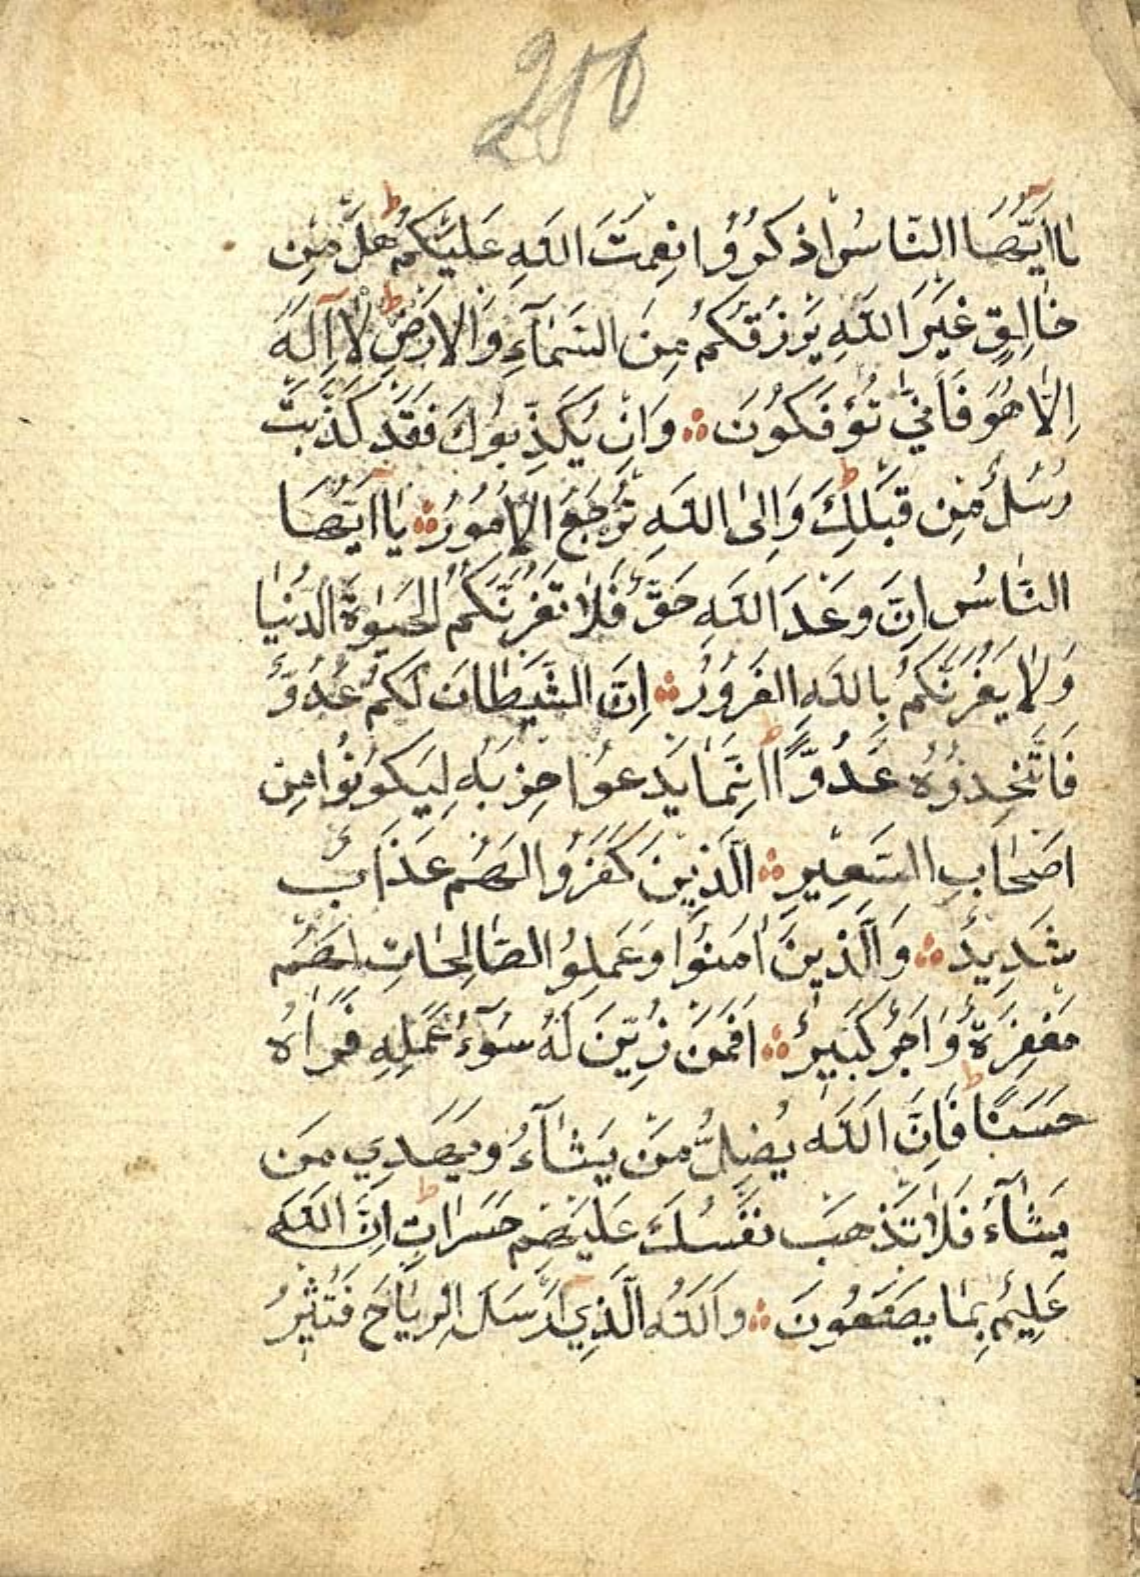 210
يٰا اَيُّهَا النَّاسُ اذكُرُوُا نِعمَتَ اللهِ عَلَيْكُمْ ط هَلْ مِنْ
خَالِقٍ غَيْرَ اللهِ يَرْزُقُكُمْ مِنَ السَّمَآءِ وَالاَرْضِ ط لاَ اِلٰهَ
اِلاَّ هُوَ فَاَنّٰي تُؤْفَكُونَ ۞ وَاِنْ يُكَذِّبوُكَ فَقَدْ كُذِّبَتْ
رُسُلٌ مِنْ قَبْلِكَ ط وَاِلىَ اللهِ تُرْجَعُ الاُمُورُ ۞ يٰا اَيُّهَا
النَّاسُ اِنَّ وَعْدَ اللهِ حَقٌّ فَلاٰ تَغُرَّنَّكُمُ الحَيٰوةُ الدُّنْيٰا
وَلاٰ يَغُرَّنَّكُمْ بِاللهِ الغَرُورُ ۞ اِنَّ الشَّيْطٰانَ لَكُمْ عَدُوٌّ
فَاتَّخِذوُهُ عَدُوًّا ط اِنَّمٰا يَدْعوُا حِزْبَهُ لِيَكوُنوُا مِن
اَصْحٰابِ السَّعِيرِ ۞ اَلَّذِينَ كَفَرُوا لَهُم عَذَابٌ
شَدِيدٌ ۞ وَالَّذينَ اٰمَنوُا وَعَمِلوُا الصّٰالِحٰاتِ لَهُمْ
مَغْفِرَةٌ وَاَجْرٌ كَبيرٌ ۞ اَفَمَنْ زُيِّنَ لَهُ سُوٓءُ عَمَلِهِ فَرَاٰهُ
حَسَنًا ط فَاِنَّ اللهَ يُضِلُّ مَنْ يَشٰآءُ وَيَهْدِي مَن
يَشٰآءُ فَلاٰ تَذْهَبْ نَفْسُكَ عَلَيْهِمْ حَسَراتٍ ط اِنَّ اللهَ
عَلِيمٌ بِمٰا يَصْنَعُونَ ۞ وَاللهُ الَّذِي اَرْسَلَ الرِّيٰاحَ فَتُثِيرُ